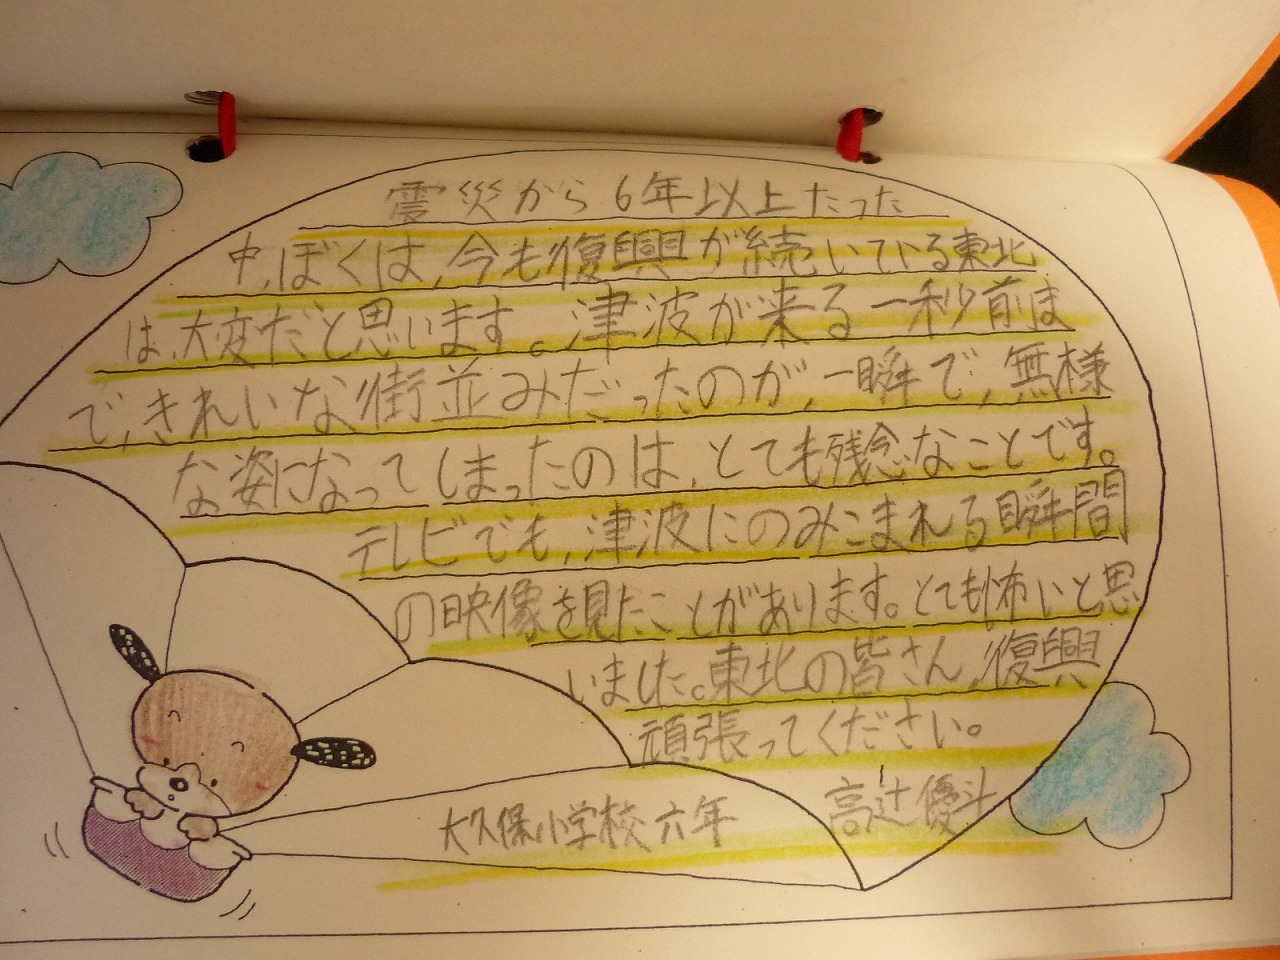 震災から6年以上たった
中、ぼくは、今も復興が続いている東北
は、大変だと思います。津波が来る一秒前ま
で、きれいな街並みだったのが、一瞬で、無様
な姿になってしまったのは、とても残念なことです。
テレビでも、津波にのみこまれる瞬間
の映像を見たことがあります。とても怖いと思
いました。東北の皆さん、復興
頑張ってください。
大久保小学校六年 高辻優斗